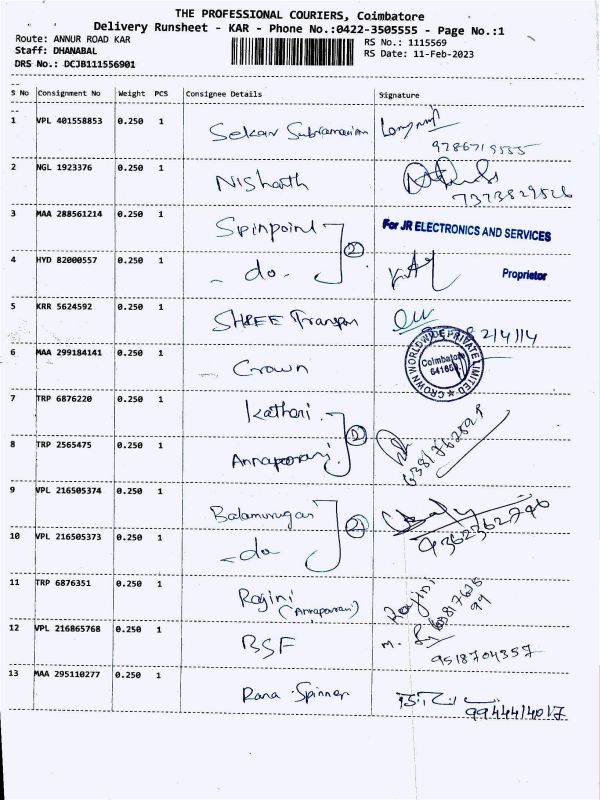 THE PROFESSIONAL COURIERS, Coimbatore
Delivery Runsheet - KAR - Phone No.:0422-3505555 - Page No.:1
Route: ANNUR ROAD KAR RS No.: 1115569
Staff: DHANABAL RS Date: 11-Feb-2023
DRS No.: DCJB111556901
S No Consignment No Weight PCS Consignee Details Signature
1 VPL 401558853 0.250 1 Sekar Subramanian
9786719555
2 NGL 1923376 0.250 1 Nishanth
7373829526
3 MAA 288561214 0.250 1 Spinpoint For JR ELECTRONICS AND SERVICES
2
4 HYD 82000557 0.250 1 - do - Proprietor
5 KRR 5624592 0.250 1 SHREE Transpon
6 MAA 299184141 0.250 1 Crown CROWN WORLDWIDE PRIVATE LIMITED
Coimbatore
7 TRP 6876220 0.250 1 Kathari
2
8 TRP 2565475 0.250 1 Annapoorani
9 VPL 216505374 0.250 1 Balamurugan
2 9362362796
10 VPL 216505373 0.250 1 - do
11 TRP 6876351 0.250 1 Ragini Ragini
(Annapoorani)
12 VPL 216865768 0.250 1 BSF
9518704357
13 MAA 295110277 0.250 1 Rana Spinner
9944414017